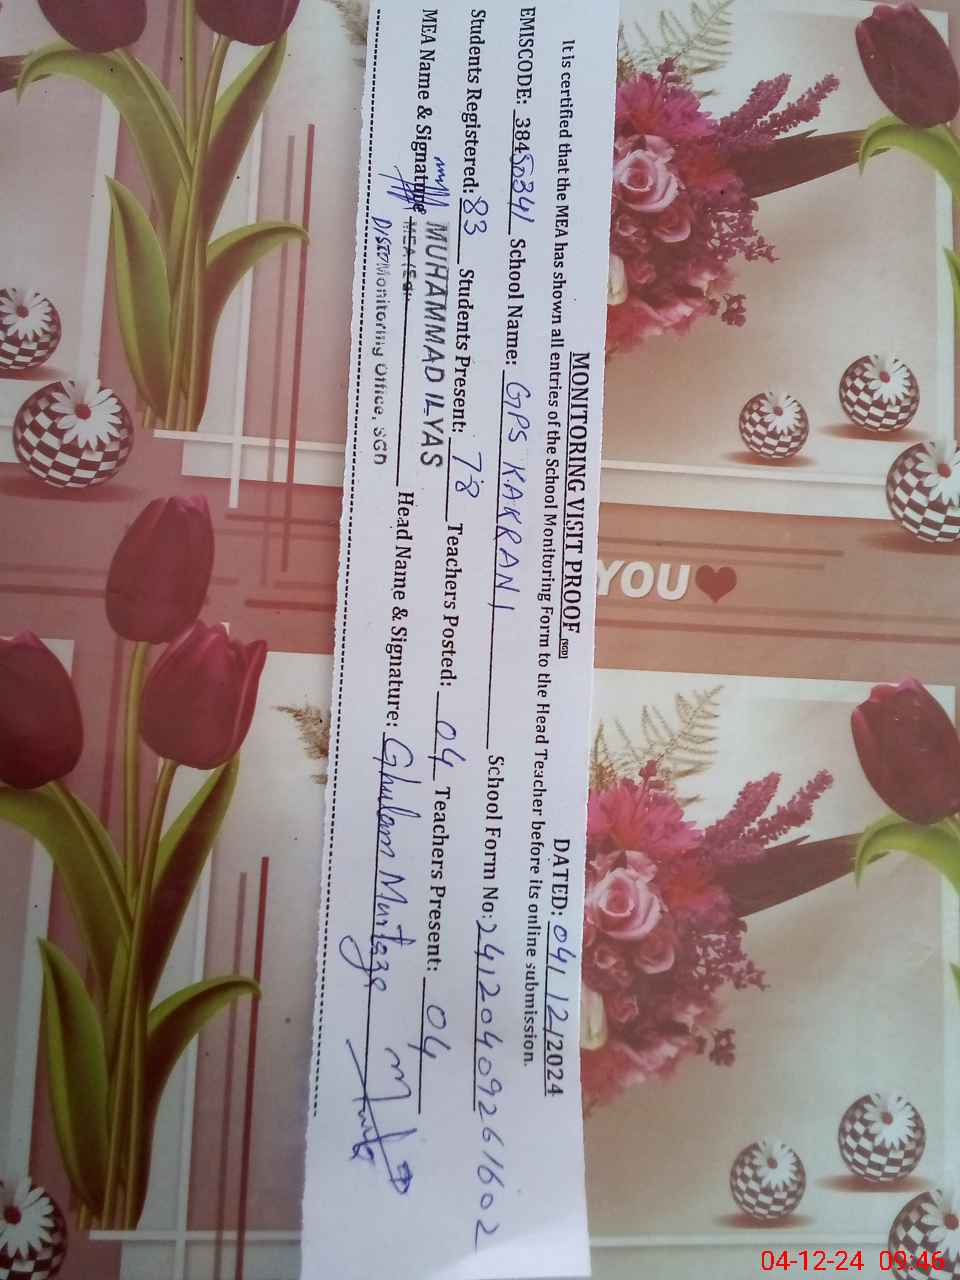 MONITORING VISIT PROOF (SGD)
DATED: 04/12/2024
It is certified that the MEA has shown all entries of the School Monitoring Form to the Head Teacher before its online submission.
EMISCODE: 38450341 School Name: GPS KAKRANI School Form No: 24120409261602
Students Registered: 83 Students Present: 78 Teachers Posted: 04 Teachers Present: 04
MEA Name & Signature MUHAMMAD ILYAS Head Name & Signature: Ghulam Murtaza
Monitoring Office, SGD
YOU
04-12-24 09:46